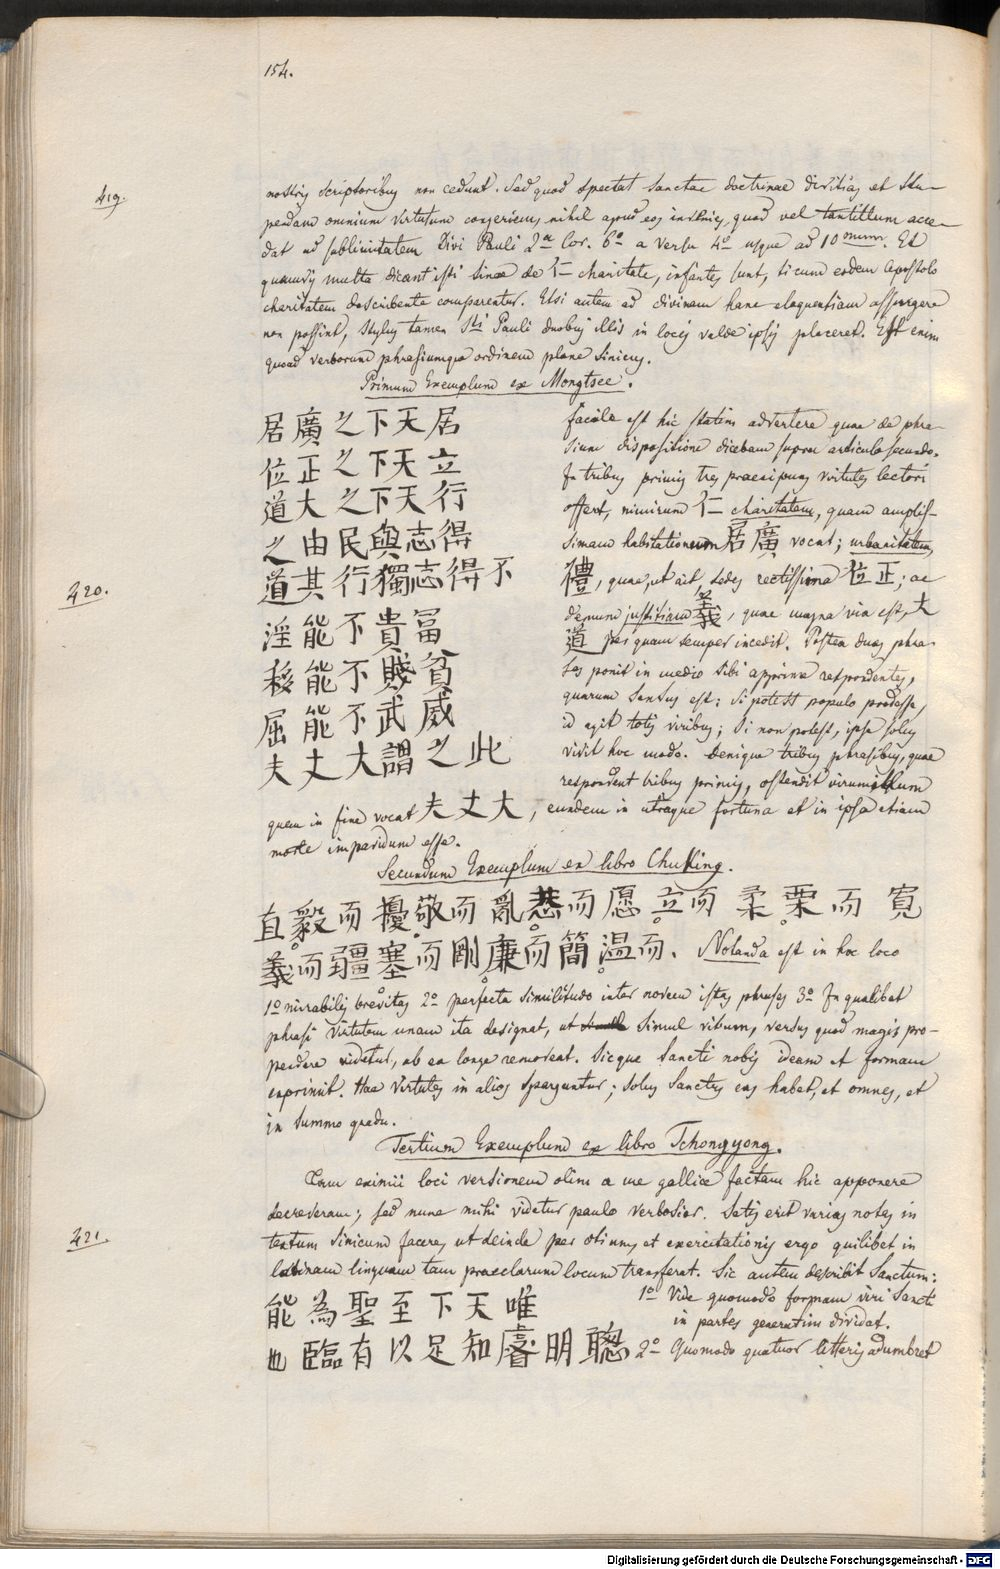 154.
419.
nostris scriptoribus non cedunt. Sed quod spectat sanctae doctrinae divitias et stu-
pendam omnium virtutum congeriem nihil apud eos invenies, quod vel tantillum acce-
dat ad sublimitatem Divi Pauli 2ae Cor. 6o a versu 4o usque ad 10mum. Et
quamvis multa dicant isti Sinae de 仁 charitate, infantes sunt, si cum eodem Apostolo
charitatem describente comparentur. Etsi autem ad divinam hanc eloquentiam assurgere
non possint, stylus tamen Sti Pauli duobus illis in locis valde ipsis placeret. Est enim
quoad verborum phrasiumque ordinem plane sinicus.
Primum Exemplum ex Mongtsee.
居廣之下天居
位正之下天立
道大之下天行
之由民與志得
道其行獨志得不
淫能不貴冨
移能不賤貧
屈能不武威
夫丈大謂之此
facile est hic statim advertere quae de phra-
sium dispositione dicebam supra articulo secundo.
In tribus primis tres praecipuas virtutes lectori
offert, nimirum 仁 charitatem, quam amplis-
simam habitationem 居廣 vocat; urbanitatem
420.
禮, quae, ut ait, sedes rectissima 位正; ac
demum justitiam 義, quae magna via est, 大
道 per quam semper incedit. Postea duas phra-
ses ponit in medio sibi apprime respondentes,
quarum sensus est: si potest populo prodesse,
id agit totis viribus; si non potest, ipse solus
vivit hoc modo. Denique tribus phrasibus, quae
respondent tribus primis, ostendit virum illum
quem in fine vocat 夫丈大, eundem in utraque fortuna et in ipsa etiam
morte impavidum esse.
Secundum Exemplum ex libro Chu King.
直毅而擾敬而亂恭而愿立而柔栗而寬
義而彊塞而剛廉而簡温而. Notanda est in hoc loco
1o mirabilis brevitas 2o perfecta similitudo inter novem istas phrases 3o In qualibet
phrasi virtutem unam ita designat, ut simul vitium, versus quod magis pro-
pendere videtur, ab ea longe removeat. Sicque Sancti nobis ideam et formam
exprimit. Hae virtutes in alios sparguntur; solus Sanctus eas habet, et omnes, et
in summo gradu.
Tertium Exemplum ex libro Tchongyong.
eximii loci versionem olim a me gallice factam hic apponere
decreveram; sed nunc mihi videtur paulo verbosior. Satis erit varias notas in
421.
textum Sinicum facere, ut deinde per otium, et exercitationis ergo quilibet in
latinam linguam tam praeclarum locum transferat. Sic autem describit Sanctum:
能為聖至下天唯
1o Vide quomodo formam viri Sancti
in partes generatim dividat.
也臨有以足知睿明聰
2o Quomodo quatuor litteris adumbret
Digitalisierung gefördert durch die Deutsche Forschungsgemeinschaft - DFG